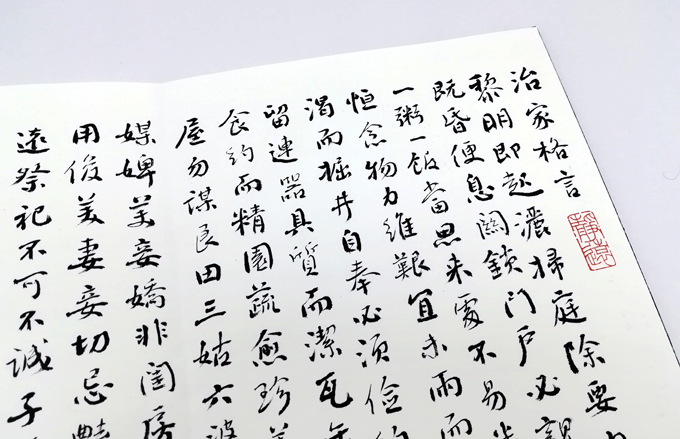 治家格言
靜遠
黎明即起灑掃庭除要
既昏便息關鎖門戶必親
一粥一飯當思來處不易
恒念物力維艱宜未雨而
渴而掘井自奉必須儉約
留連器具質而潔瓦
食約而精園蔬愈珍
屋勿謀良田三姑六婆
媒婢美妾嬌非閨房
用俊美妻妾切忌豔
遠祭祀不可不誠子